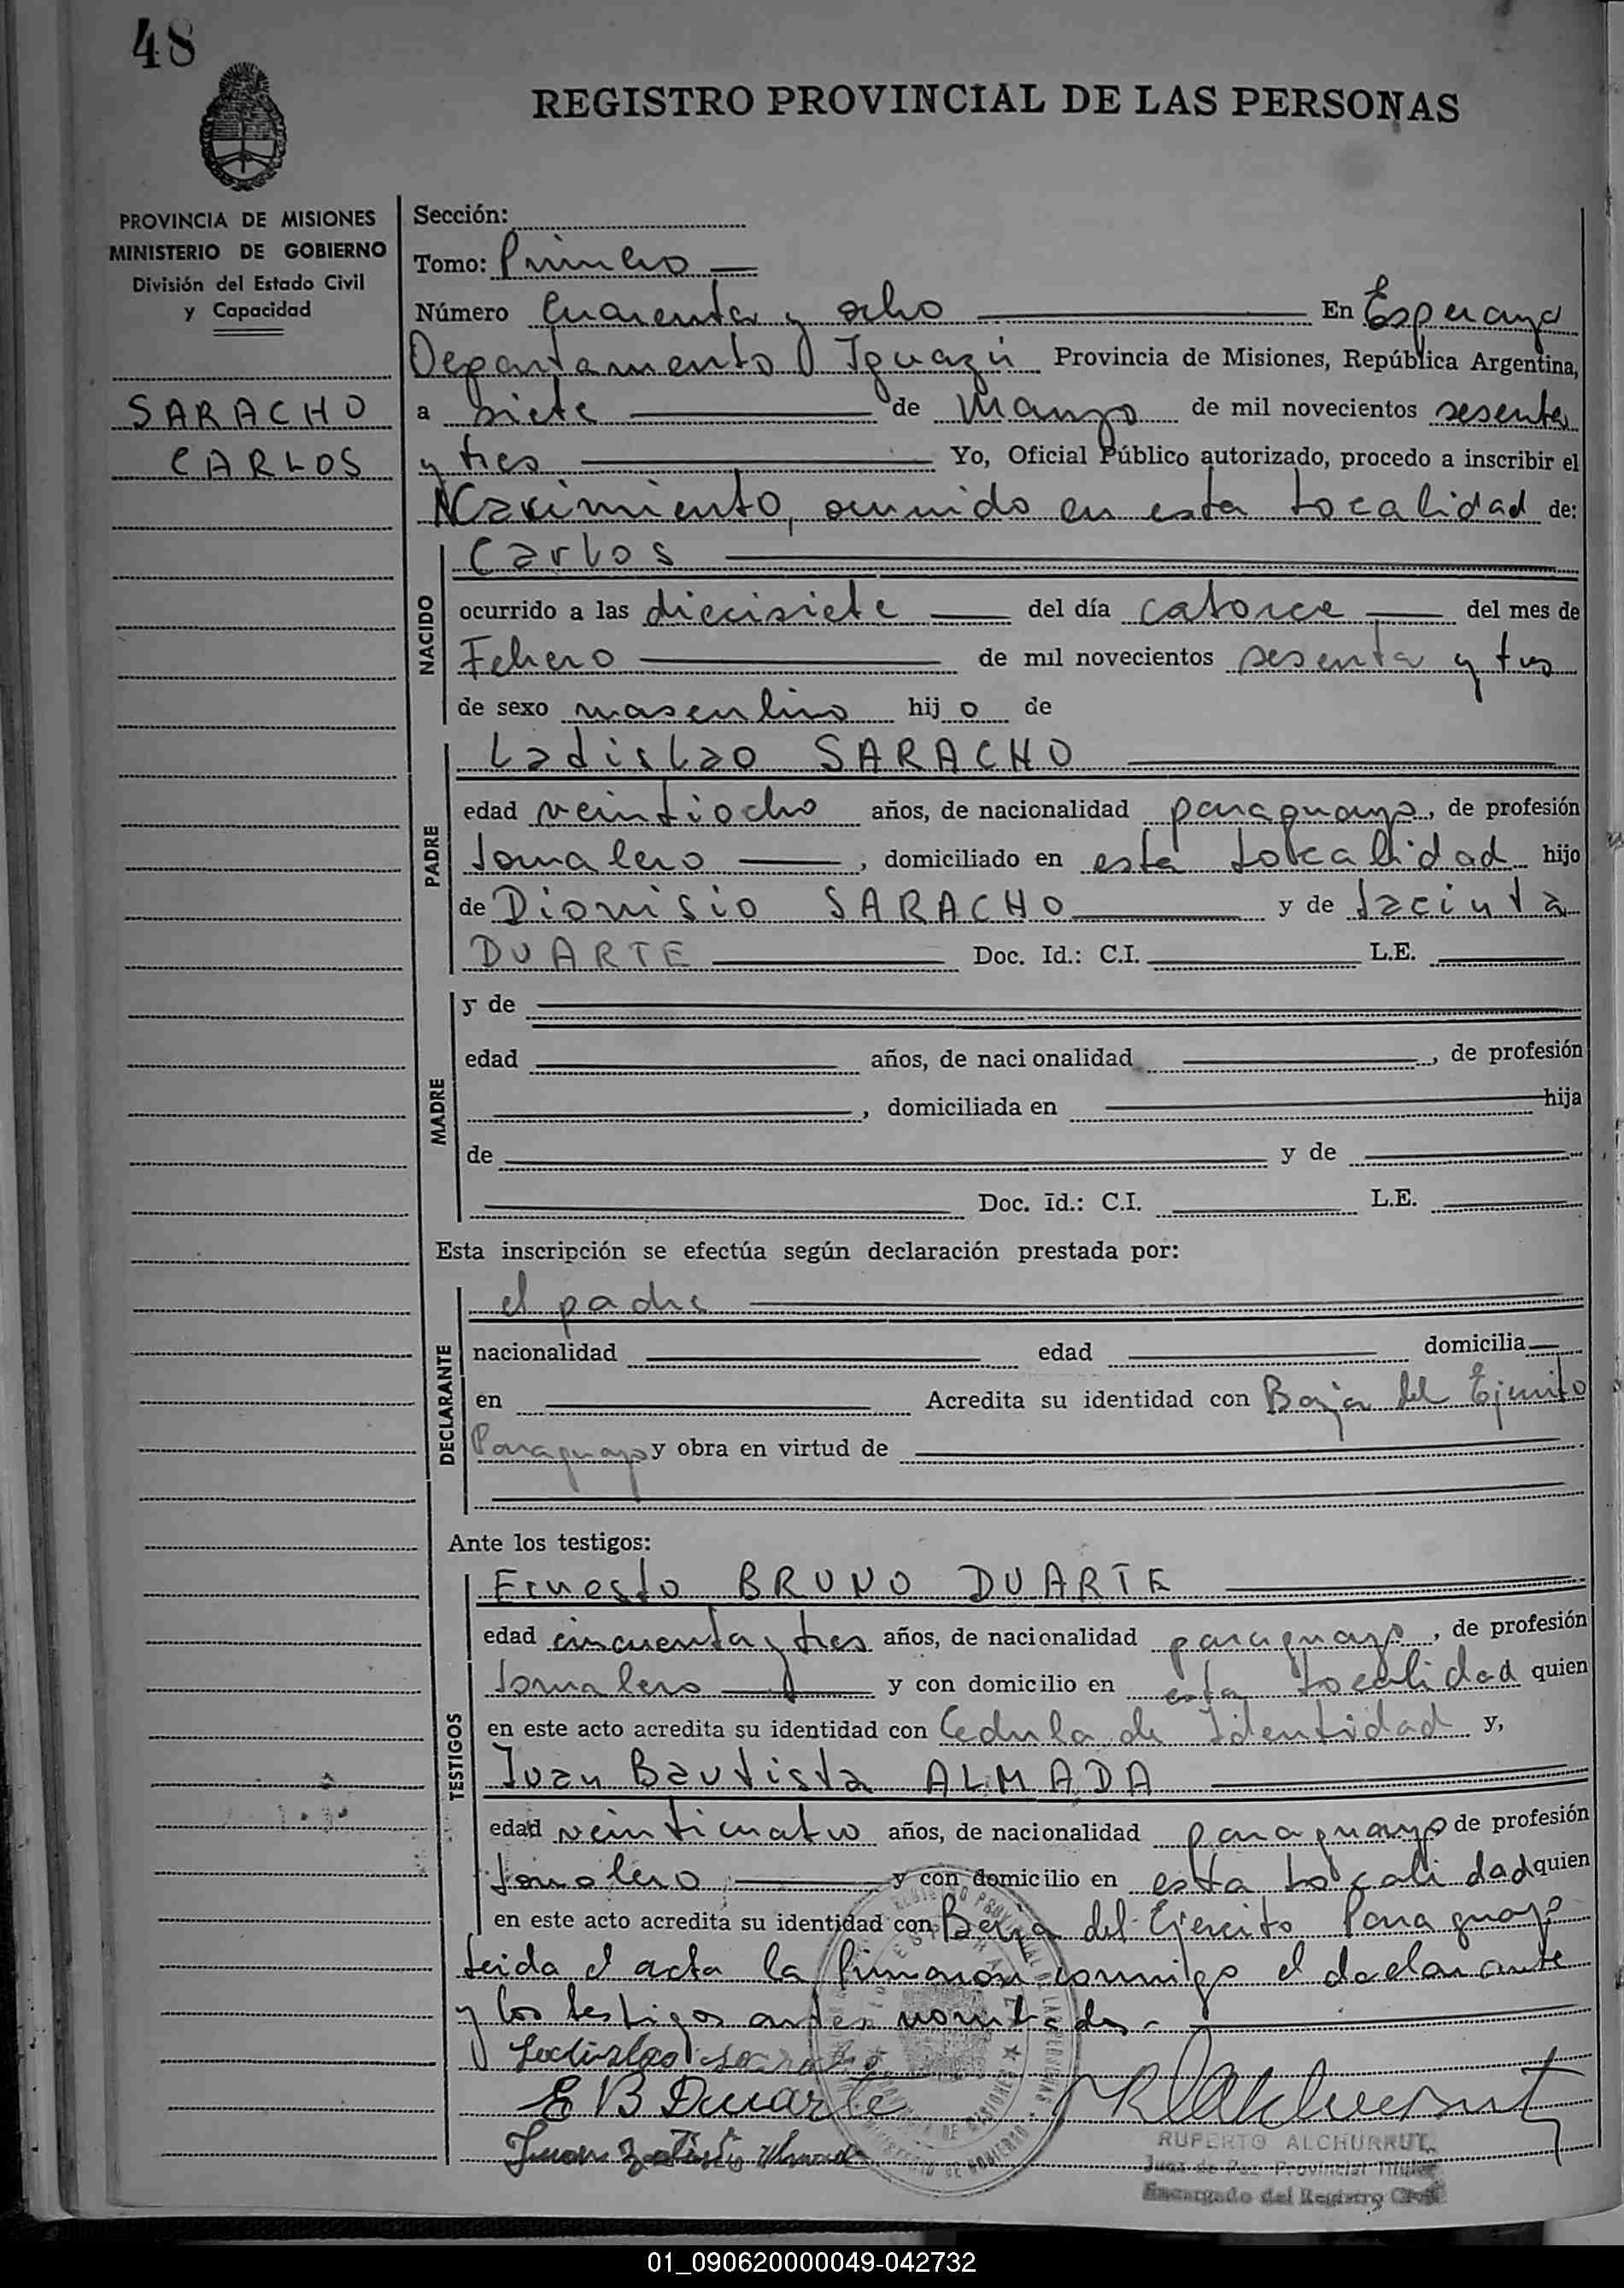 48
REGISTRO PROVINCIAL DE LAS PERSONAS
PROVINCIA DE MISIONES
MINISTERIO DE GOBIERNO
División del Estado Civil
y Capacidad
SARACHO
CARLOS
Sección:
Tomo: Primero
Número Cuarenta y ocho En Esperanza
Departamento Iguazú Provincia de Misiones, República Argentina,
a siete de Marzo de mil novecientos sesenta
y tres Yo, Oficial Público autorizado, procedo a inscribir el
Nacimiento, ocurrido en esta localidad de:
NACIDO
Carlos
ocurrido a las diecisiete del día catorce del mes de
Febrero de mil novecientos sesenta y tres
de sexo masculino hijo de
PADRE
Ladislao SARACHO
edad veintiocho años, de nacionalidad paraguayo, de profesión
Jornalero, domiciliado en esta localidad hijo
de Dionisio SARACHO y de Jacinta
DUARTE Doc. Id.: C.I. L.E.
MADRE
y de
edad años, de naci onalidad , de profesión
, domiciliada en hija
de y de
Doc. Id.: C.I. L.E.
Esta inscripción se efectúa según declaración prestada por:
DECLARANTE
el padre
nacionalidad edad domicilia
en Acredita su identidad con Baja del Ejercito
Paraguayo y obra en virtud de
Ante los testigos:
TESTIGOS
Ernesto BRUNO DUARTE
edad cincuenta y tres años, de nacionalidad paraguayo, de profesión
Jornalero y con domicilio en esta localidad quien
en este acto acredita su identidad con Cedula de Identidad y,
Juan Bautista ALMADA
edad veinticuatro años, de nacionalidad paraguayo de profesión
Jornalero y con domicilio en esta localidad quien
en este acto acredita su identidad con Baja del Ejercito Paraguayo
Leida el acta la firmaron conmigo el declarante
y los testigos antes nombrados.-
Ladislao Saracho
E B Duarte
Juan Bautista Almada
RUPERTO ALCHURRUT
Juez de Paz Provincial Titular
Encargado del Registro Civil
01_090620000049-042732